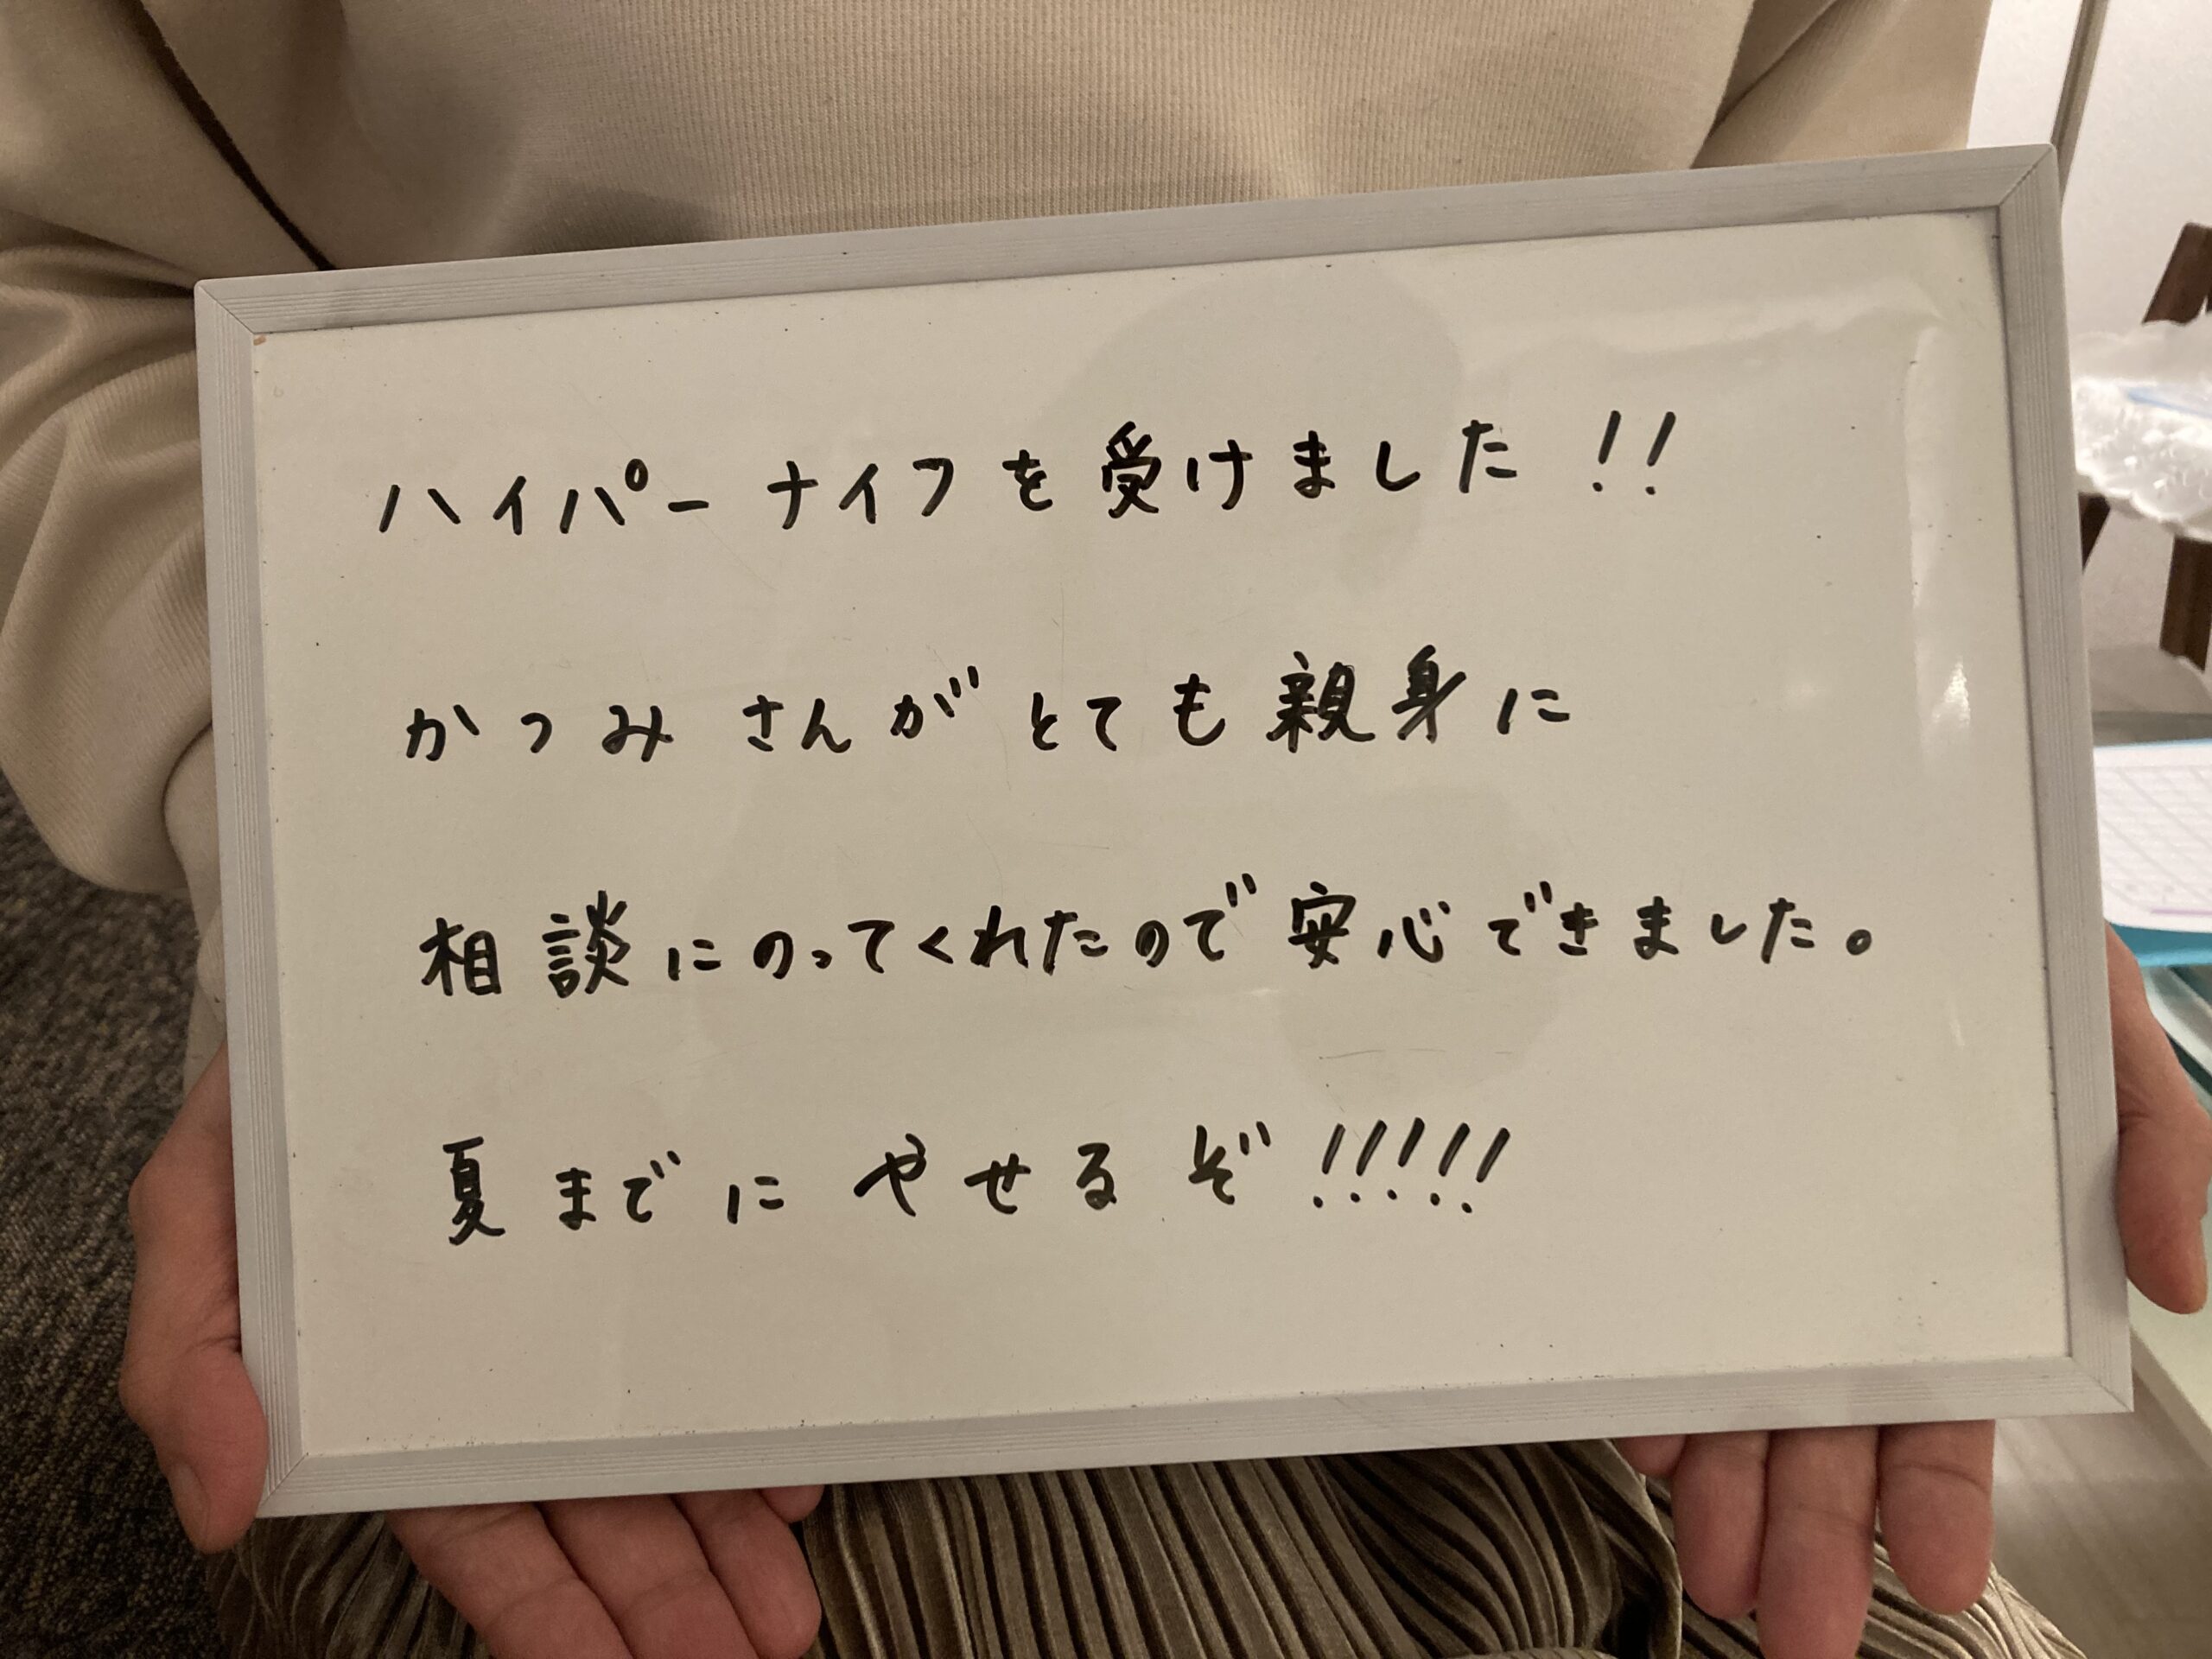 ハイパーナイフを受けました!!
かつみさんがとても親身に
相談にのってくれたので安心できました。
夏までにやせるぞ!!!!!